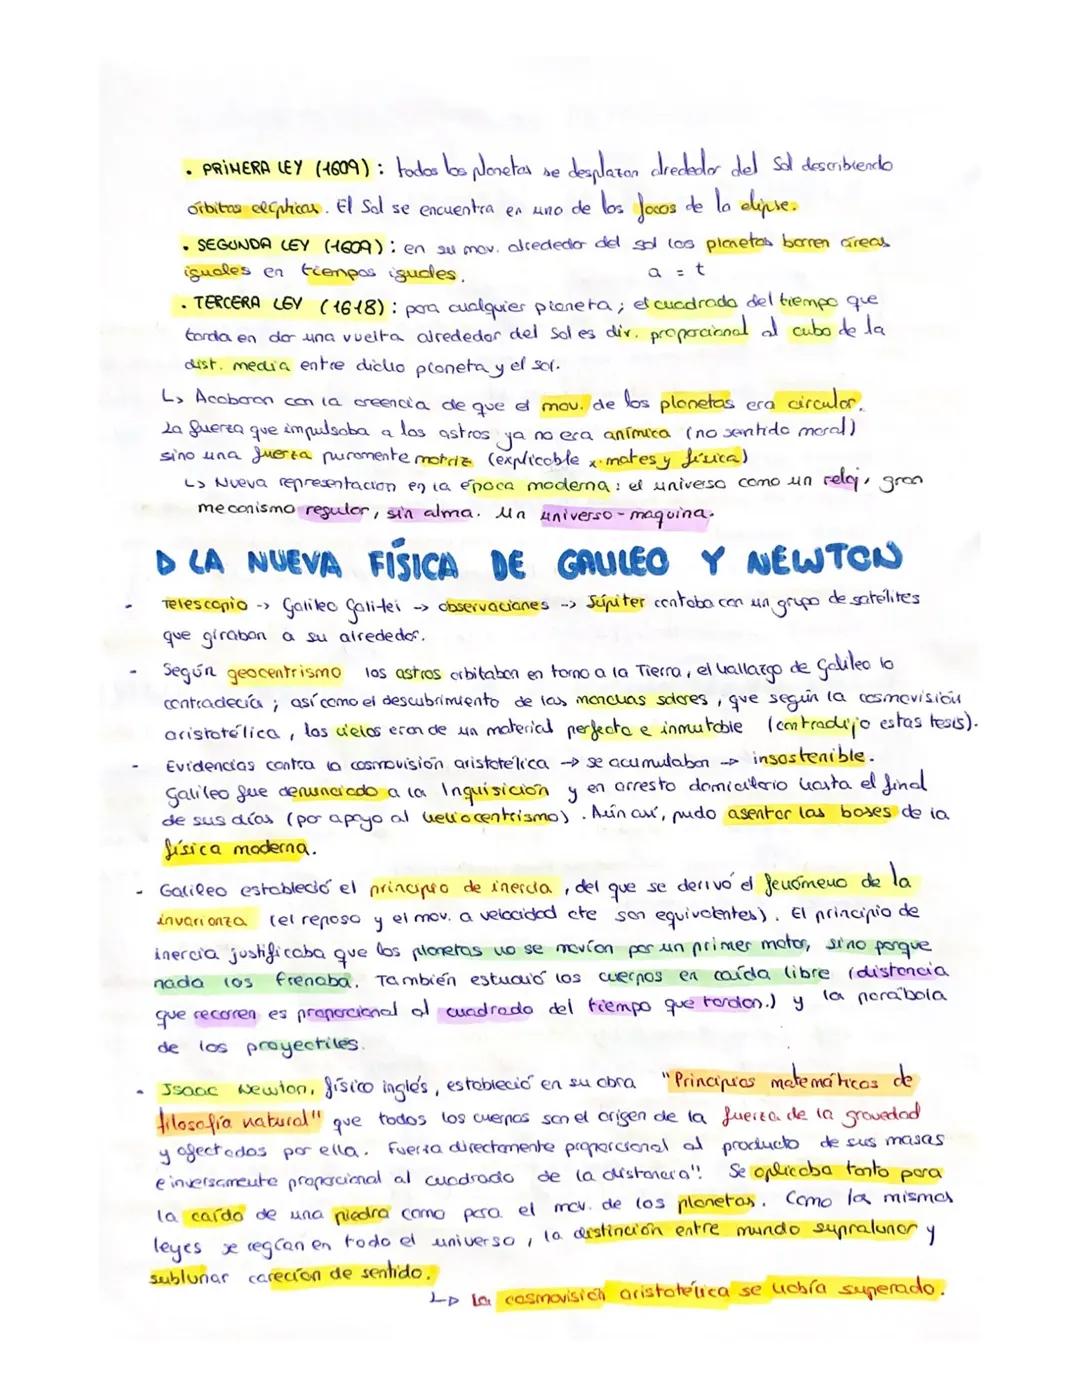 • PRIMERA LEY (1609): todos los planetas se desplazan alrededor del Sol describiendo
órbitas elípticas. El Sol se encuentra en uno de los focos de la elipse.
• SEGUNDA LEY (1609): en su mov. alrededor del sol los planetas barren áreas
iguales en tiempos iguales. a = t
• TERCERA LEY (1618): para cualquier planeta; el cuadrado del tiempo que
tarda en dar una vuelta alrededor del Sol es dir. proporcional al cubo de la
dist. media entre dicho planeta y el sol.
↳ Acabaron con la creencia de que el mov. de los planetas era circular.
La fuerza que impulsaba a los astros ya no era anímica (no sentido moral)
sino una fuerza puramente motriz (explicable x mates y física)
↳ Nueva representacion en la época moderna: el universo como un reloj, gran
mecanismo regular, sin alma. Un universo-maquina.
▷ LA NUEVA FÍSICA DE GALILEO Y NEWTON
- Telescopio -> Galileo Galilei -> observaciones -> Júpiter contaba con un grupo de satélites
que giraban a su alrededor.
- Según geocentrismo los astros orbitaban en torno a la Tierra, el hallazgo de Galileo lo
contradecía; así como el descubrimiento de las manchas solares, que según la cosmovisión
aristotélica, los cielos eran de un material perfecto e inmutable (contradijo estas tesis).
- Evidencias contra la cosmovisión aristotélica -> se acumulaban -> insostenible.
Galileo fue denunciado a la Inquisición y en arresto domiciliario hasta el final
de sus días (por apoyo al heliocentrismo). Aún así, pudo asentar las bases de la
física moderna.
- Galileo estableció el principio de inercia, del que se derivó el fenómeno de la
invarianza (el reposo y el mov. a velocidad cte son equivalentes). El principio de
inercia justificaba que los planetas no se movían por un primer motor, sino porque
nada los frenaba. También estudió los cuerpos en caída libre (distancia
que recorren es proporcional al cuadrado del tiempo que tardan.) y la parábola
de los proyectiles.
- Isaac Newton, físico inglés, estableció en su obra "Principios matemáticos de
filosofía natural" que todos los cuerpos son el origen de la fuerza de la gravedad
y afectados por ella. Fuerza directamente proporcional al producto de sus masas
e inversamente proporcional al cuadrado de la distancia". Se aplicaba tanto para
la caída de una piedra como para el mov. de los planetas. Como las mismas
leyes se regían en todo el universo, la distinción entre mundo supralunar y
sublunar carecían de sentido.
↳ La cosmovisión aristotélica se había superado.